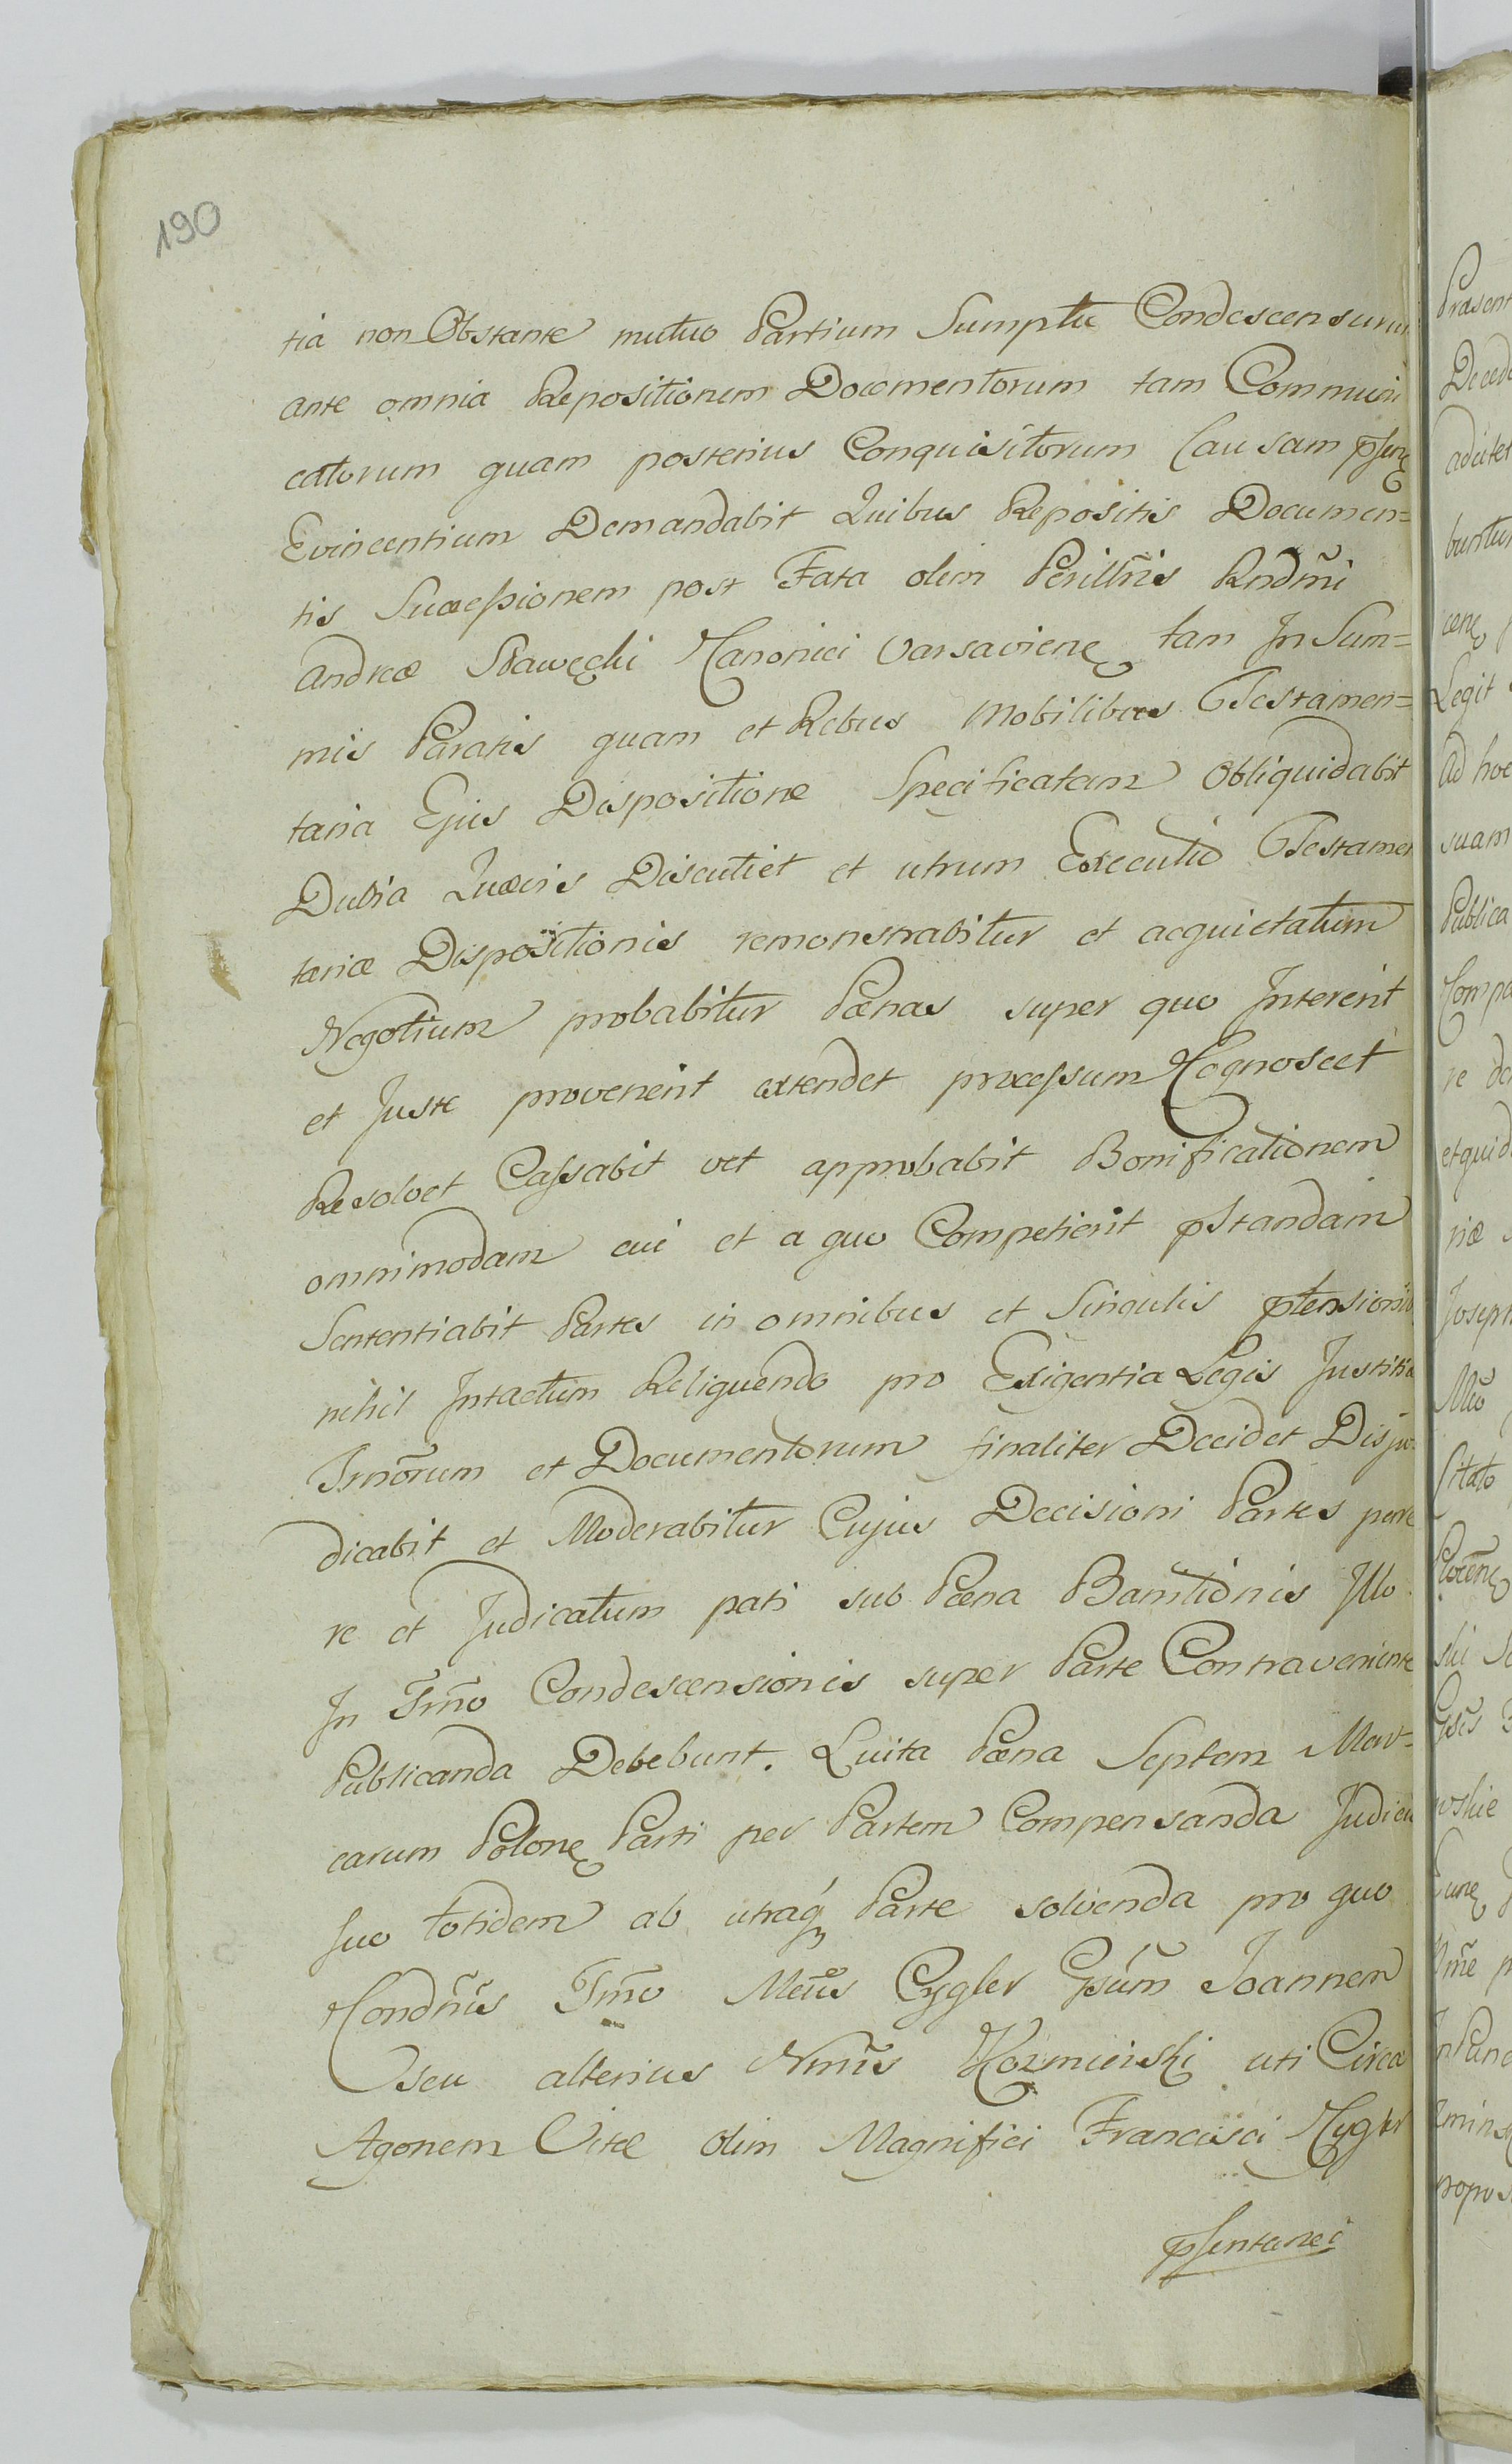 190
tia non Obstante mutuo Partium Sumptu Condescensurum
ante omnia Repositionem Documentorum tam Communi
catorum quam posterius Conquisitorum Causam pñsenę
Evincentium Demandabit Quibus Repositis Documen=
tis Successionem post Fata olim Perillris Rndm̃i
Andreæ Sławęcki Canonici Varsavienę tam In Sum=
mis Paratis quam et Rebus Mobilibus Testamen=
taria Ejus Dispositione Specificatam Obliquidabit
Dubia Quævis Discutiet et utrum Executio Testamen
tariæ Dispositionis remonstrabitur et acquietatum
Negotium probabitur Pænas super quo Intererit
et Juste provenerit extendet processum Cognoscet
Resolvet Cassabit vel approbabit Bonificationem
omnimodam cui et a quo Competierit pstandam
Sententiabit Partes in omnibus et Singulis ptensionib
nihil Intactum Relinquendo pro Exigentia Legis Justitiæ
Trnõrum et Documentorum finaliter Decidet Disju
dicabit et Moderabitur Cujus Decisioni Partes pare
re et Judicatum pati sub Pæna Banitionis Illo
In Trño Condescensionis super Parte Contraveniente
Publicanda Debebunt. Luita Pæna Septem Mar=
carum Polonę Parti per Partem Compensanda Judicio
suo totidem ab utraq Parte solvenda pro quo
Condñus Trño Meñus Cygler Gsũm Joannem
seu alterius Nrñus Kozmiński uti Circa
Agonem Vitæ olim Magnifici Francisci Cygler
pñsentanei
Præsent
Deced
buntur
cenę
Legit
Ad hoc
suam
Publica
Compa
re de
et quid
niæ
Joseph
Citato
ski
wskie
propos